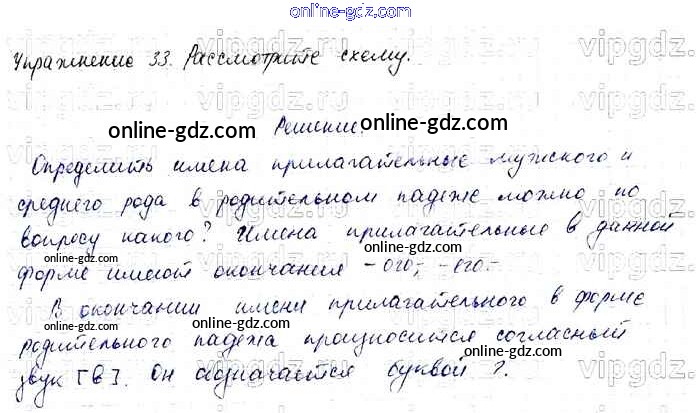 online-gdz.com
Упражнение 33. Рассмотрите схему.
Решение.
online-gdz.com
online-gdz.com
Определить имена прилагательные мужского и
среднего рода в родительном падеже можно по
вопросу какого? Имена прилагательные в данной
online-gdz.com
форме имеют окончания -ого-, -его-
В окончании имени прилагательного в форме
online-gdz.com
родительного падежа произносится согласный
online-gdz.com
звук [в]. Он обозначается буквой г.
online-gdz.com